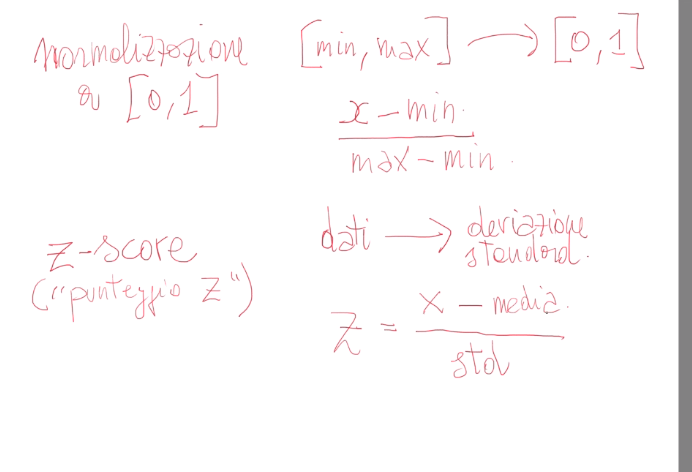 normalizzazione
a [0,1]
[min, max] → [0,1]
x - min
max - min
z-score
("punteggio Z")
dati → deviazione
standard.
Z = x - media
std